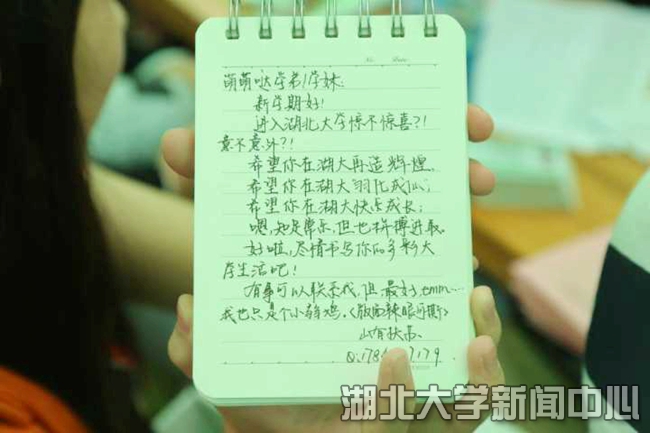 No. Date.
萌萌哒学弟/学妹:
新学期好!
进入湖北大学惊不惊喜?!
意不意外?!
希望你在湖大再造辉煌,
希望你在湖大羽化成仙;
希望你在湖大快点成长;
嗯,知足常乐,但也拼搏进取。
好啦,尽情书写你的多彩大
学生活吧!
有事可以联系我,但最好,emm…
我也只是个小弱鸡。《敬面辣眼可撕》
山有扶苏
湖北大学新闻中心